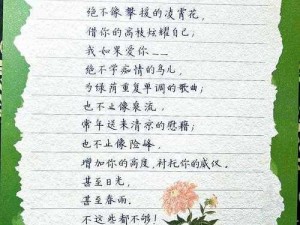 绝不像攀援的凌霄花,
借你的高枝炫耀自己;
我如果爱你——
绝不学痴情的鸟儿,
为绿荫重复单调的歌曲;
也不止像泉流,
常年送来清凉的慰藉;
也不止像险峰,
增加你的高度,衬托你的威仪。
甚至日光,
甚至春雨。
不这些都不够!